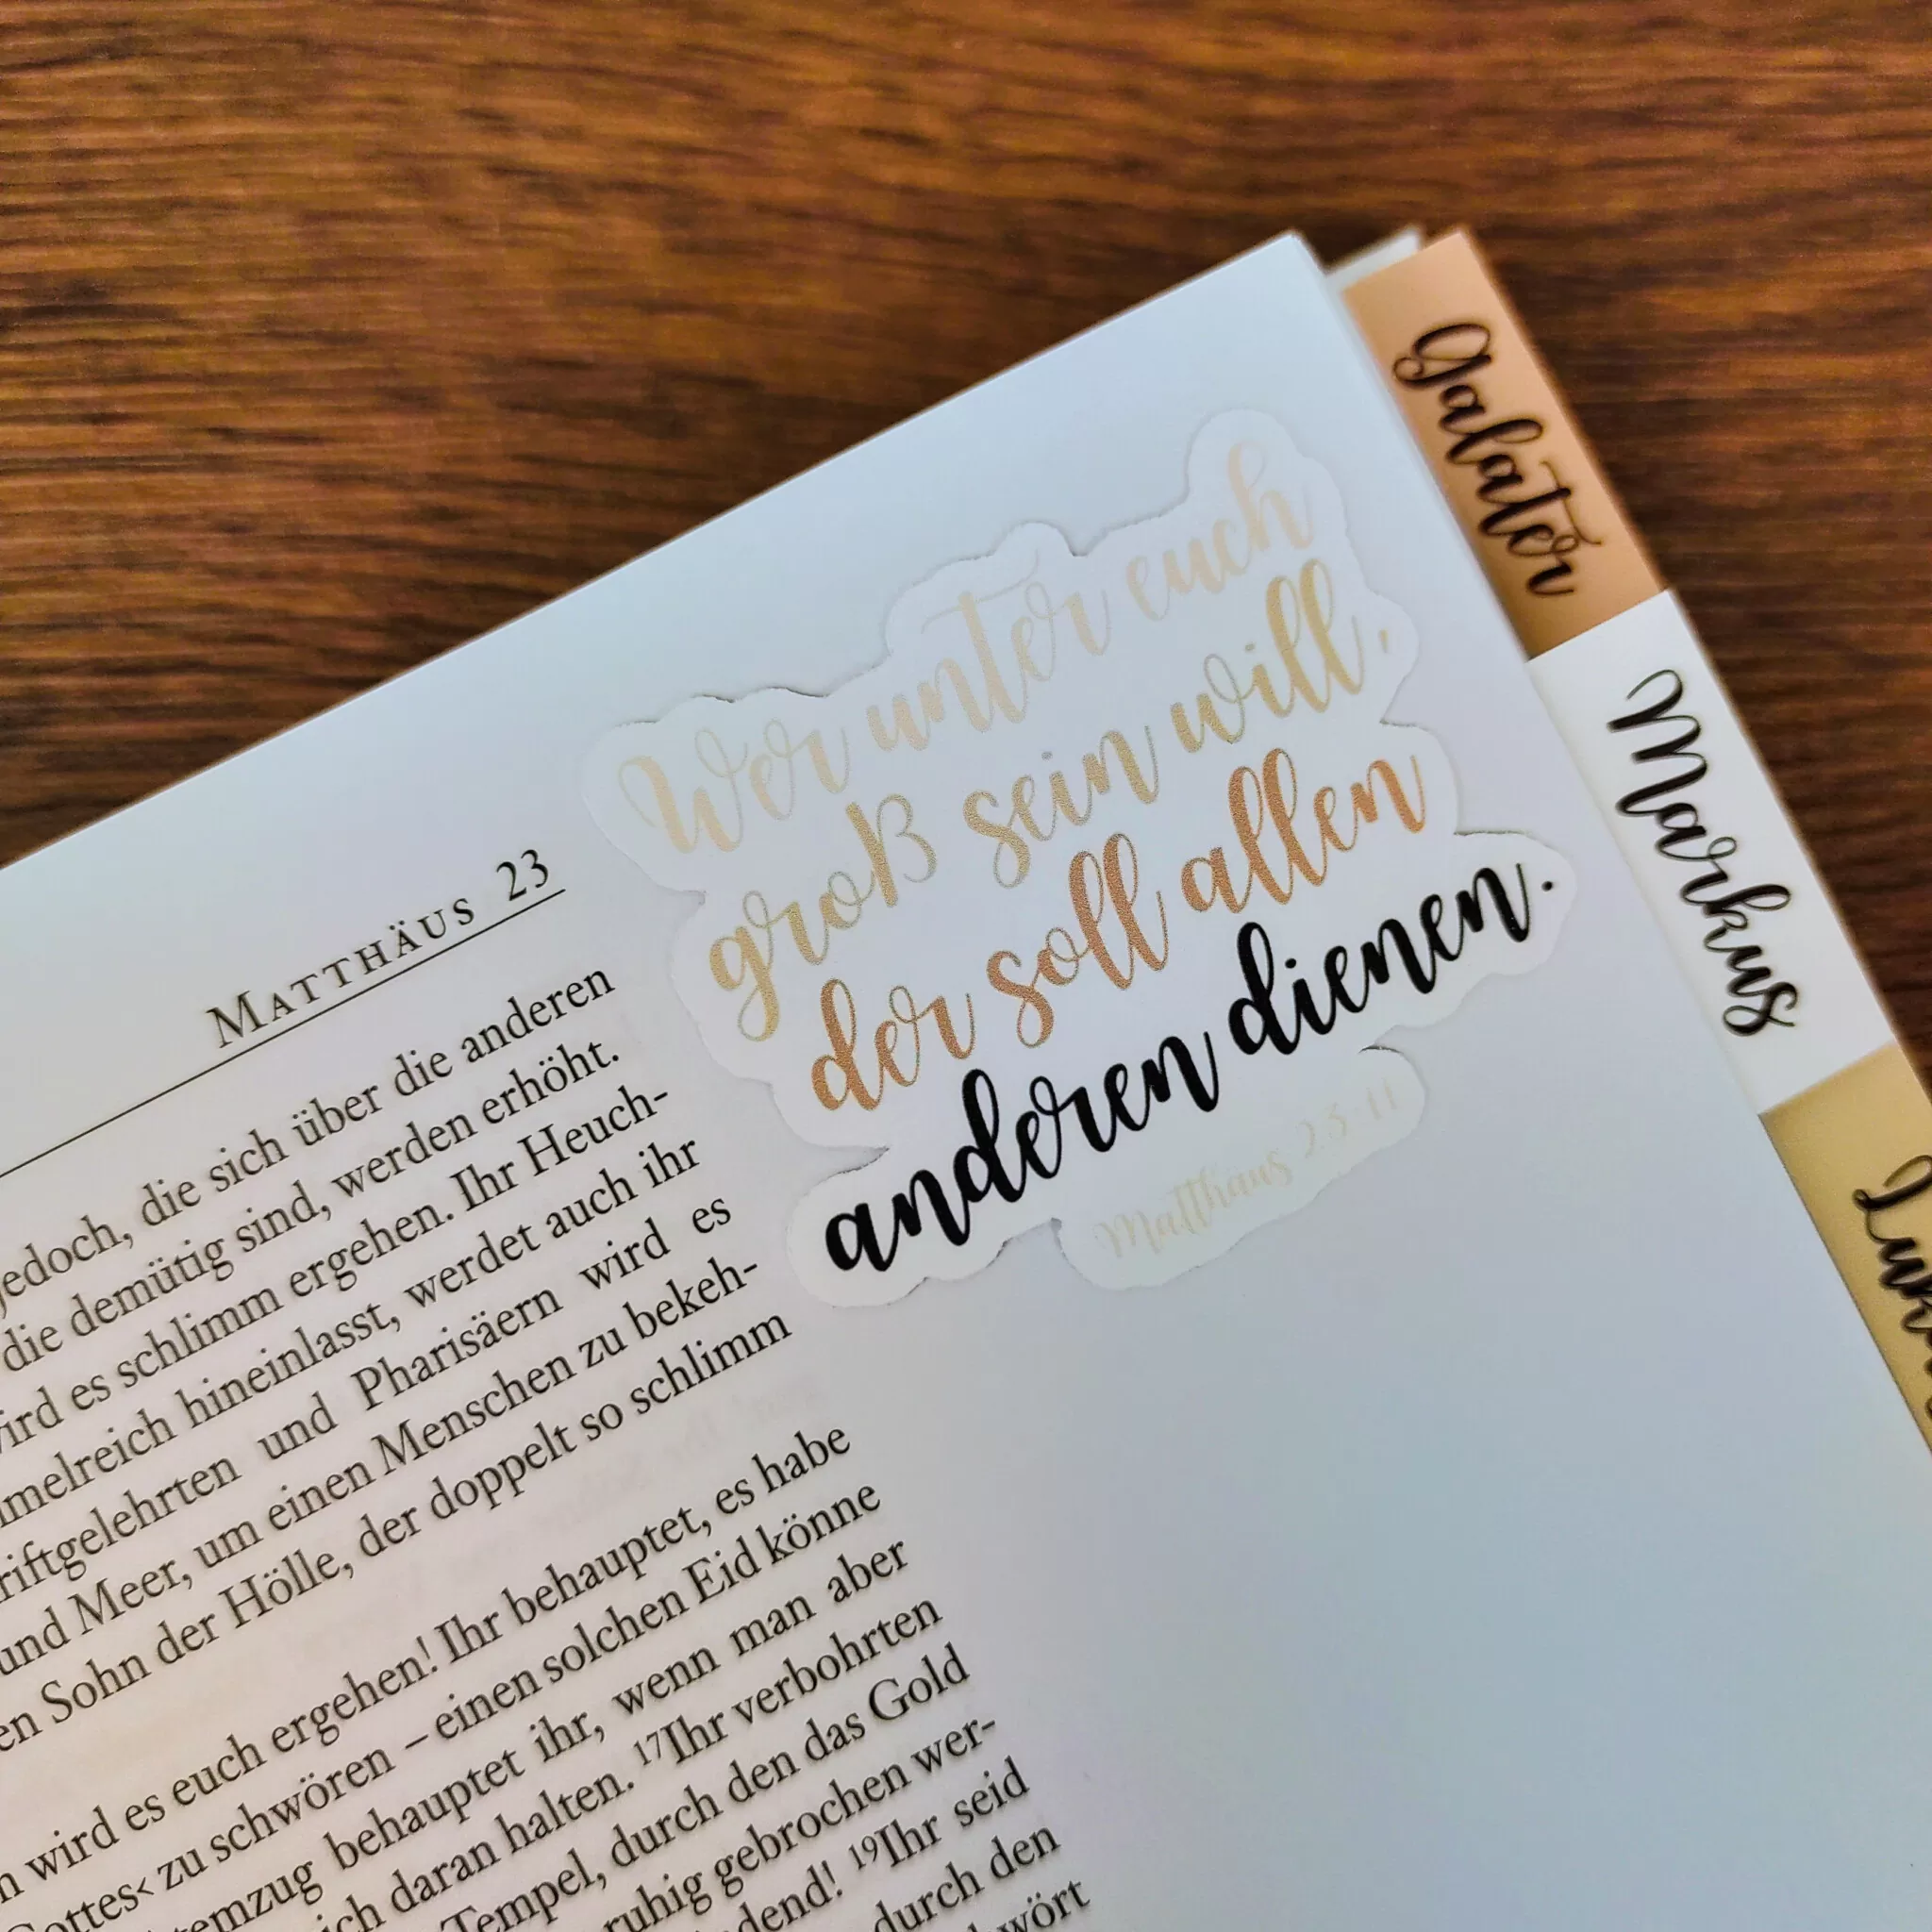 Matthäus 23
Wer unter euch
groß sein will,
der soll allen
anderen dienen.
Matthäus 23-11
Galater
Markus
jedoch, die sich über die anderen
die demütig sind, werden erhöht.
wird es schlimm ergehen. Ihr Heuch-
melreich hineinlasst, werdet auch ihr
riftgelehrten und Pharisäern wird es
und Meer, um einen Menschen zu bekeh-
en Sohn der Hölle, der doppelt so schlimm
n wird es euch ergehen! Ihr behauptet, es habe
Gottes‹ zu schwören – einen solchen Eid könne
temzug behauptet ihr, wenn man aber
ich daran halten. 17Ihr verbohrten
Tempel, durch den das Gold
ruhig gebrochen wer-
dend! 19Ihr seid
durch den
wört